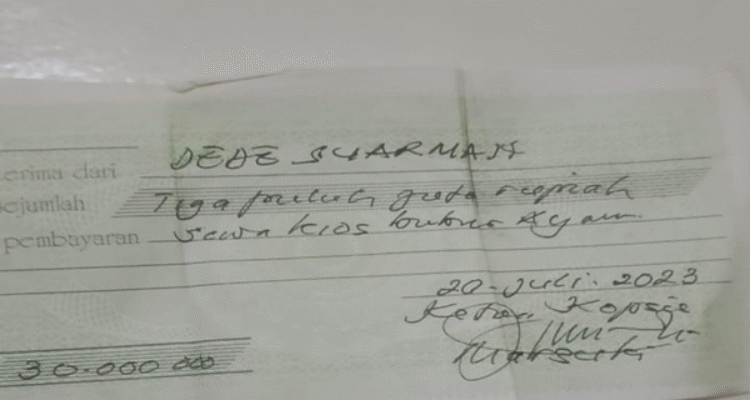 erima dari DEDE SUARMAN
ejumlah Tiga puluh juta rupiah
pembayaran sewa kios bubur Ayam
20-juli-2023
Ketua
30.000 000